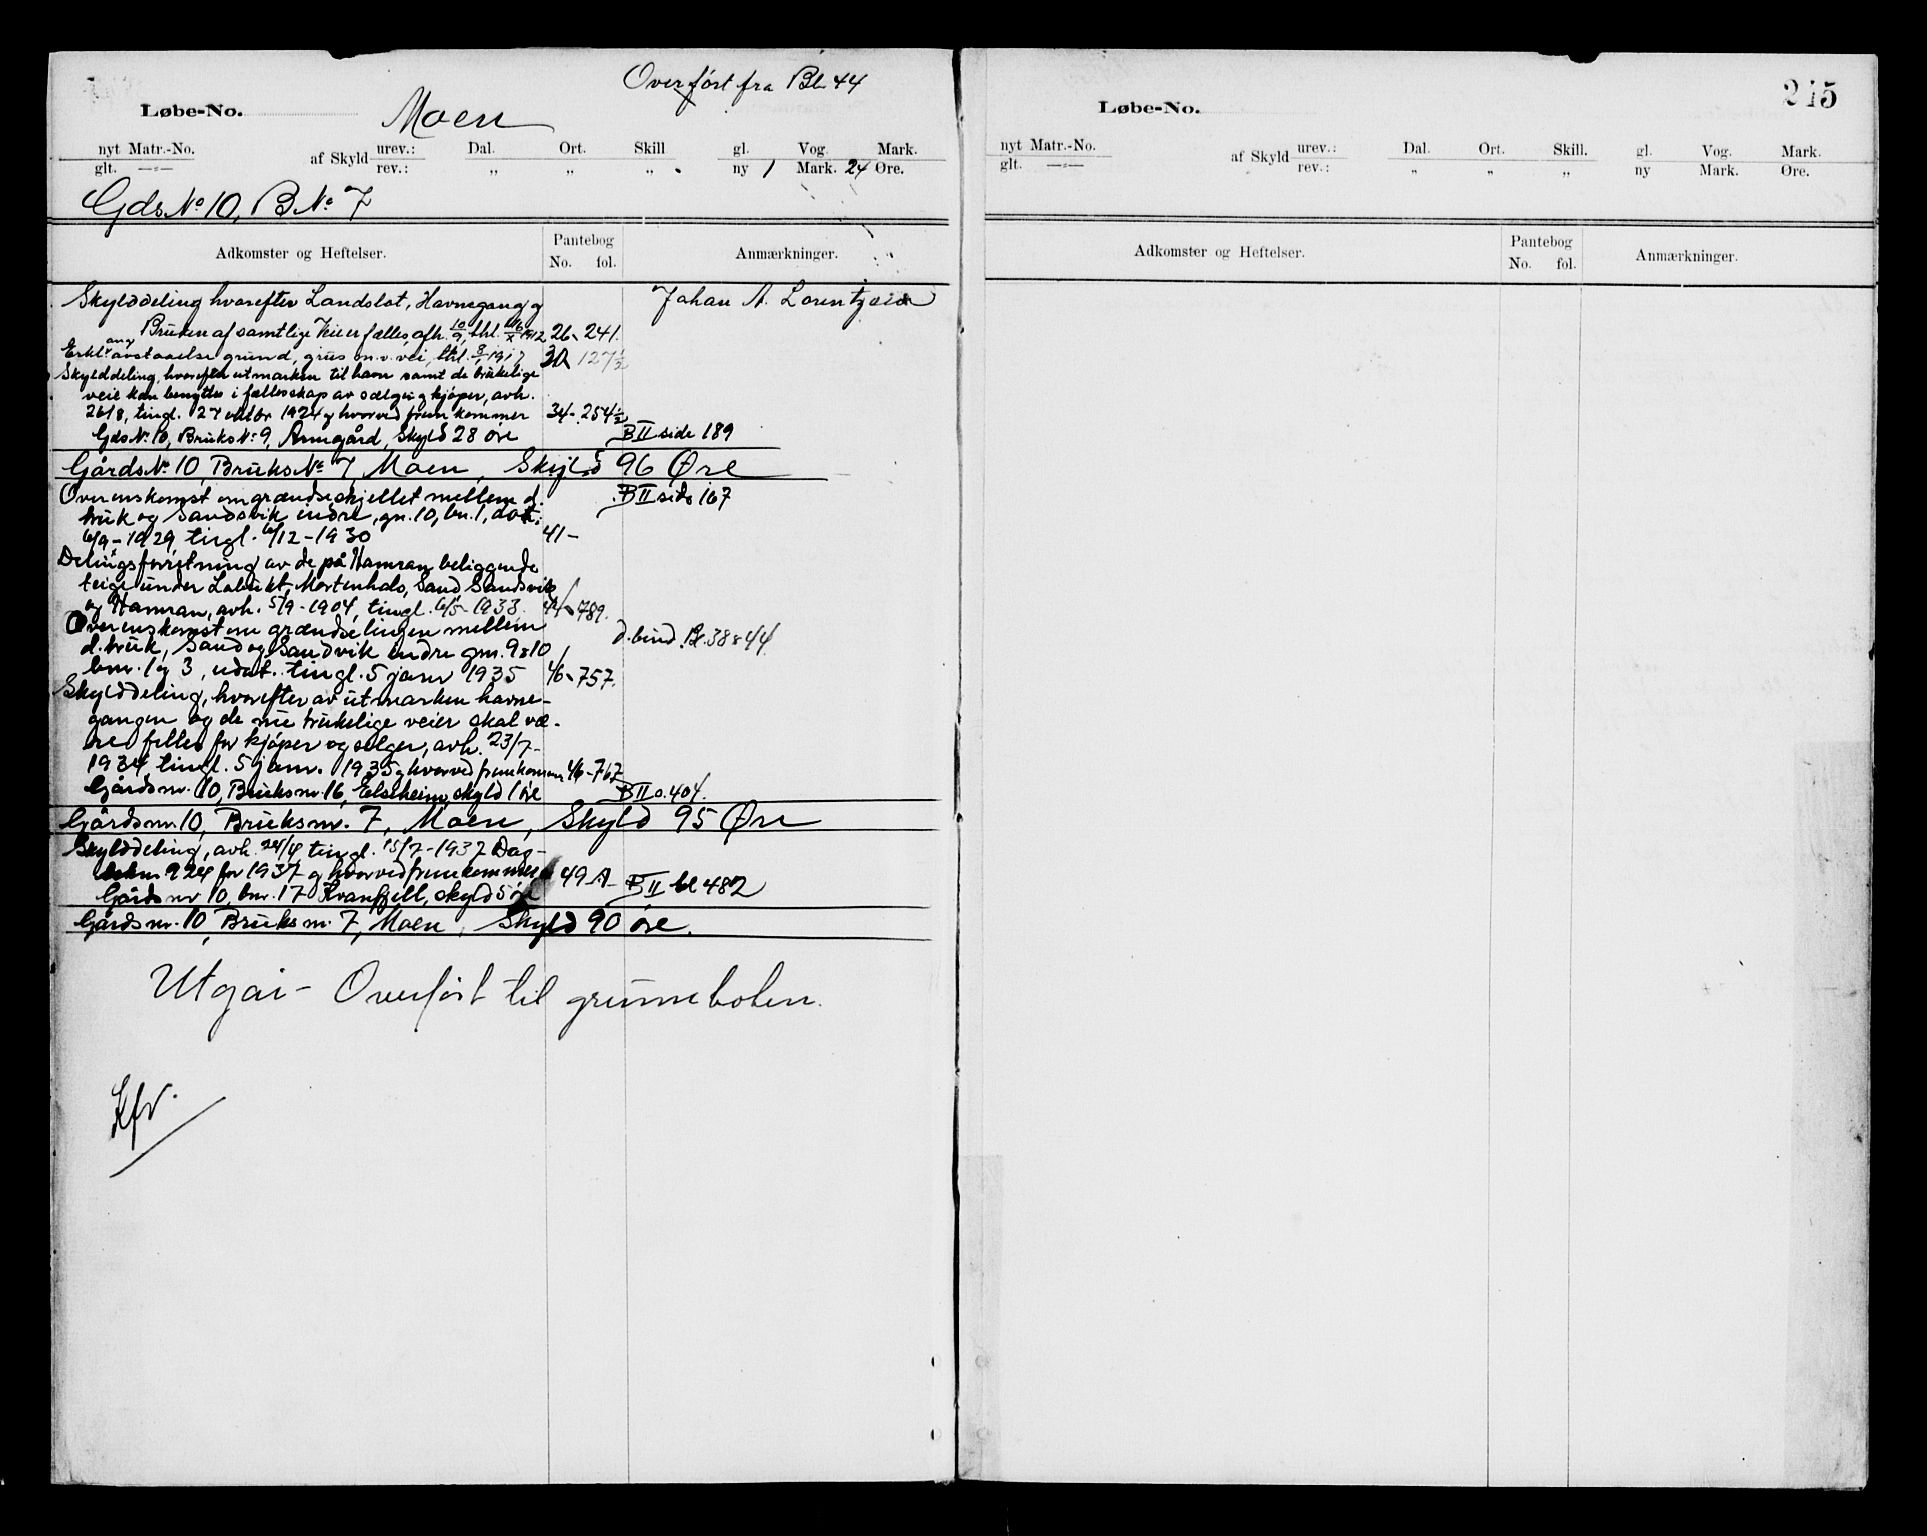 Overført fra Bl. 44
Løbe-No. Moen
nyt Matr.-No. af Skyld urev.: Dal. Ort. Skill gl. Vog. Mark.
glt. —"— rev.: „ „ „ ny 1 Mark. 24 Øre.
Gds No 10, B No 7
Adkomster og Heftelser. Pantebog No. fol. Anmærkninger.
Skylddeling hvorefter Landslot, Havnegang og Johan A. Lorentzen
Bruken af samtlige Veie er fælles, afh. 10/9, thl. 1912 26, 241.
Erkl. ang. avstaaelse grund, grus m.v. vei, thl. 1917 30 127 1/2
Skylddeling, hvorefter utmarken til havn samt de brukelige
veie kan benyttes i fællesskap av sælger og kjøper, avh.
26/8, tingl. 27 oktbr 1924 og hvorved fremkommer 34-254 1/2
Gds No. 10, Bruks No. 9, Annegård, Skyld 28 øre B II side 189
Gårds No 10, Bruks No 7, Moen, Skyld 96 Øre
Overenskomst om grændseskjellet mellem d. B II side 167
bruk og Sandsvik indre, gn. 10, bn. 1, dat.
6/9-1929, tingl. 6/12-1930 41-
Delingsforretning av de på Hamran beliggende
teige under Labukt, Mortenhals, Sand Sandsvik
og Hamran, avh. 5/9-1904, tingl. 6/5-1933. 44-789.
Overenskomst om grændselinjen mellem d. bind. Bl. 38 & 44
d. bruk, Sand og Sandvik indre gnr. 9 & 10
bnr. 1 og 3, udat. tingl. 5 janr 1935 46-757.
Skylddeling, hvorefter av utmarken havne-
gangen og de nu brukelige veier skal væ-
re felles for kjøper og selger, avh. 23/7-
1934 tingl. 5 janr. 1935 og hvorved fremkommer 46-767
Gårdsnr. 10, Bruksnr. 16, Elseheim, skyld 1 øre B II s. 404.
Gårdsnr. 10, Bruksnr. 7, Moen, Skyld 95 Øre
Skylddeling, avh. 24/4 tingl. 15/7-1937 Dag-
boknr. 924 for 1937 og hvorved fremkommer 49 A- B II bl 482
Gårdsnr 10, bnr. 17 Kvanfjell, skyld 5 øre
Gårdsnr. 10, Bruksnr. 7, Moen, Skyld 90 øre.
Utgår - Overført til grunnboken.
Kfr.
215
Løbe-No.
nyt Matr.-No. af Skyld urev.: Dal. Ort. Skill. gl. Vog. Mark.
glt. —"— rev.: „ „ „ ny Mark. Øre.
Adkomster og Heftelser. Pantebog No. fol. Anmærkninger.